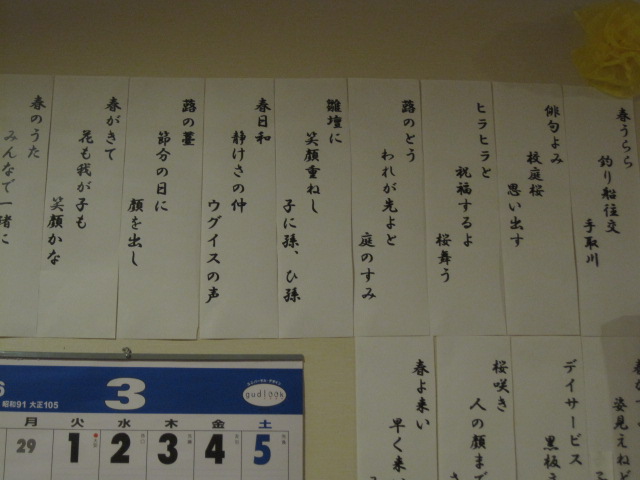 春うらら
釣り船往交
手取川
俳句よみ
校庭桜
思い出す
ヒラヒラと
祝福するよ
桜舞う
蕗のとう
われが先よと
庭のすみ
雛壇に
笑顔重ねし
子に孫、ひ孫
春日和
静けさの仲
ウグイスの声
蕗の薹
節分の日に
顔を出し
春がきて
花も我が子も
笑顔かな
春のうた
みんなで一緒に
姿見えねど
デイサービス
黒板
桜咲き
人の顔まで
春よ来い
早く来い
6
昭和91 大正105
3
oudlook
月 火 水 木 金 土
29 1 2 3 4 5